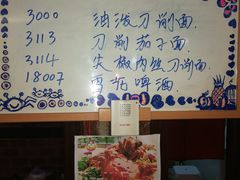 3000 油泼刀削面.
3113 刀削茄子面.
3114 尖椒肉丝刀削面.
18007 雪花啤酒.